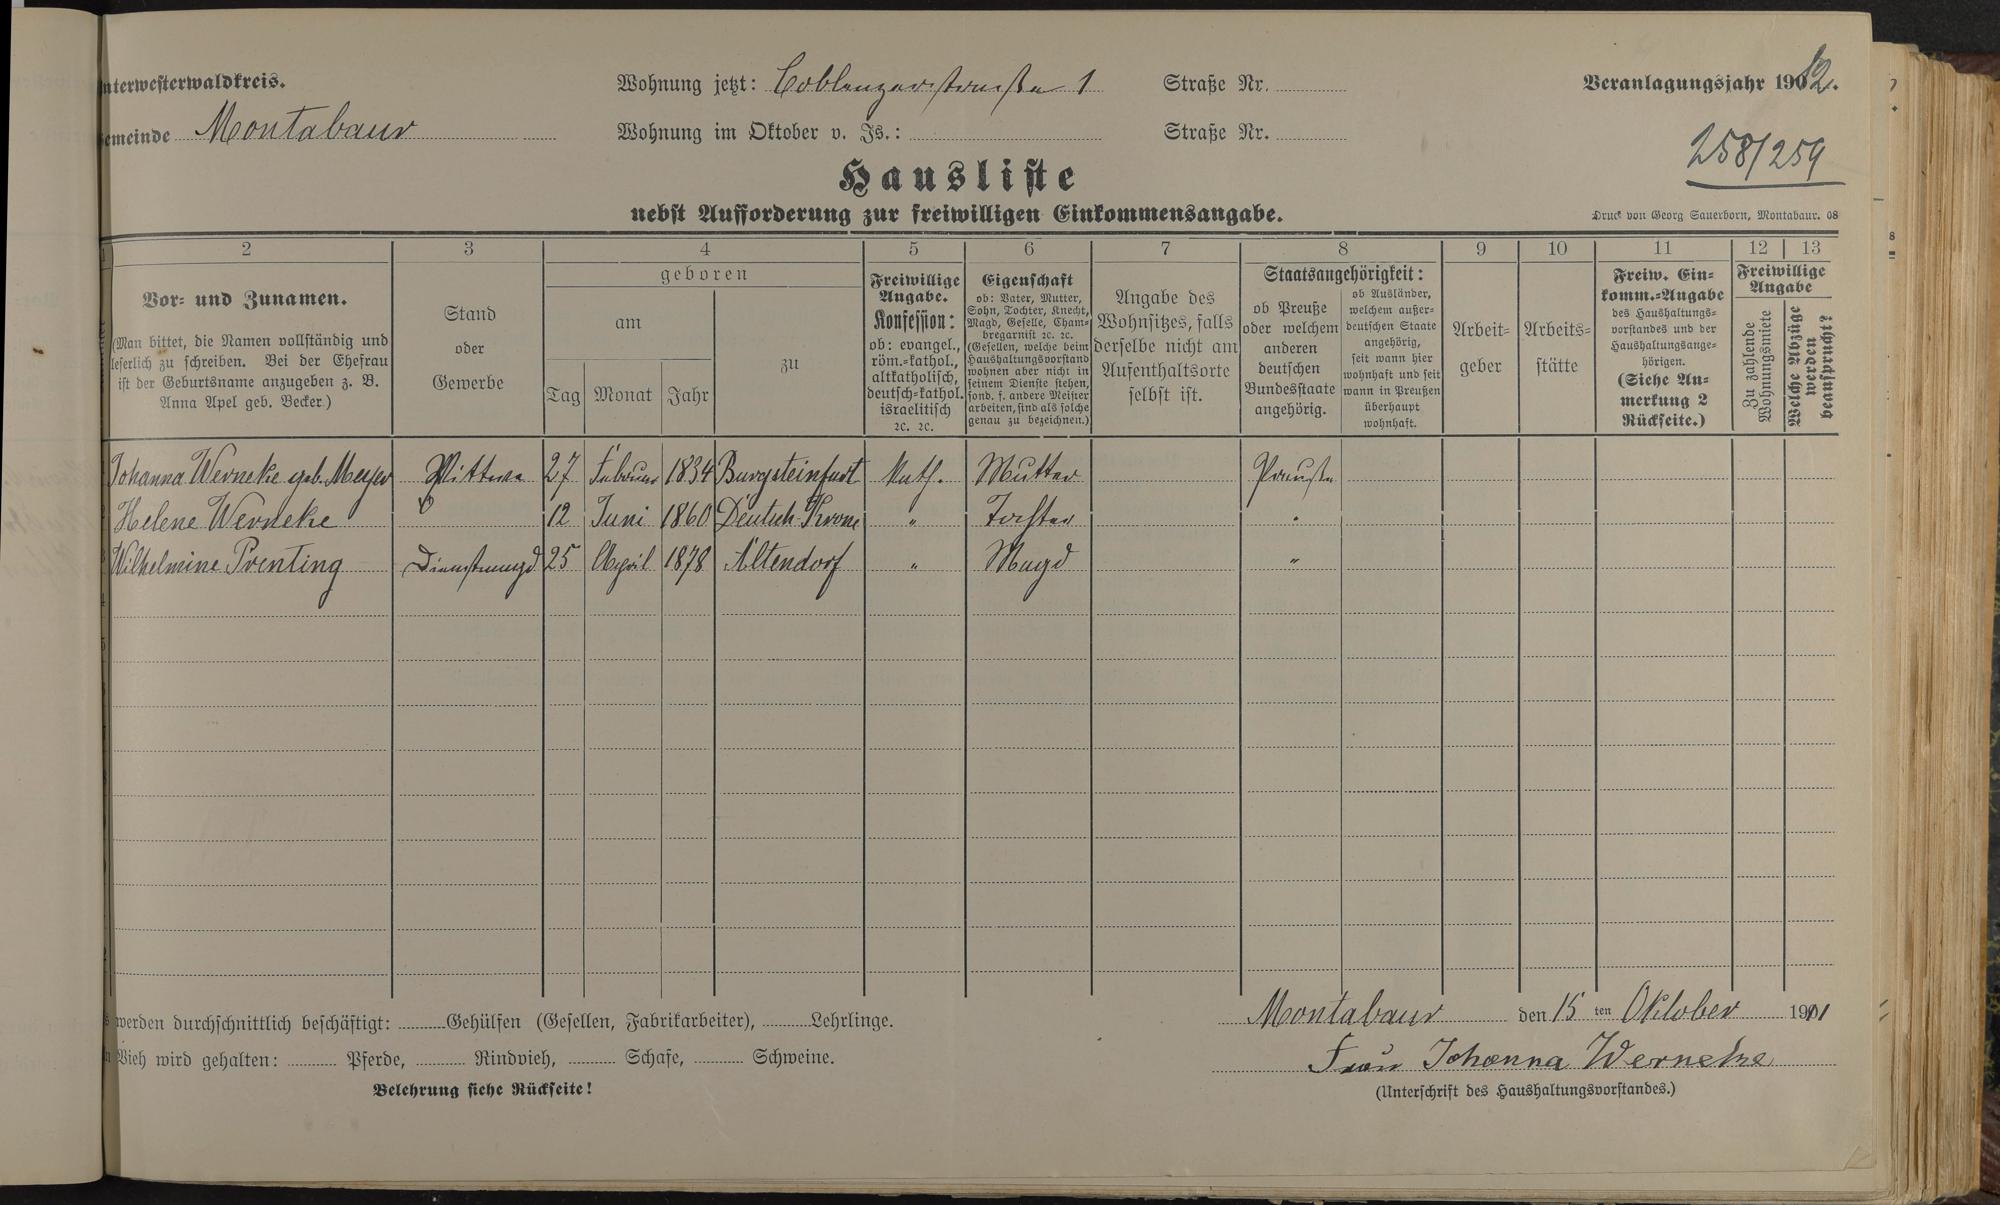 nterwesterwaldkreis.
Wohnung jetzt: Coblenzerstrasse 1 Straße Nr.
Veranlagungsjahr 1912.
emeinde Montabaur
Wohnung im Oktober v. Js.: Straße Nr.
258/259
Hausliste
nebst Aufforderung zur freiwilligen Einkommensangabe.
Druck von Georg Sauerborn, Montabaur. 08
2 3 4 5 6 7 8 9 10 11 12 13
Vor- und Zunamen.
(Man bittet, die Namen vollständig und
leserlich zu schreiben. Bei der Ehefrau
ist der Geburtsname anzugeben z. B.
Anna Apel geb. Becker.)
Stand
oder
Gewerbe
geboren
am
Tag Monat Jahr
zu
Freiwillige
Angabe.
Konfession:
ob: evangel.,
röm.-kathol.,
altkatholisch,
deutsch-kathol.
israelitisch
ꝛc. ꝛc.
Eigenschaft
ob: Vater, Mutter,
Sohn, Tochter, Knecht,
Magd, Geselle, Cham-
bregarnist ꝛc. ꝛc.
(Gesellen, welche beim
Haushaltungsvorstand
wohnen aber nicht in
seinem Dienste stehen,
sond. f. andere Meister
arbeiten, sind als solche
genau zu bezeichnen.)
Angabe des
Wohnsitzes, falls
derselbe nicht am
Aufenthaltsorte
selbst ist.
Staatsangehörigkeit:
ob Preuße
oder welchem
anderen
deutschen
Bundesstaate
angehörig.
ob Ausländer,
welchem außer-
deutschen Staate
angehörig,
seit wann hier
wohnhaft und seit
wann in Preußen
überhaupt
wohnhaft.
Arbeit-
geber
Arbeits-
stätte
Freiw. Ein-
komm.-Angabe
des Haushaltungs-
vorstandes und der
Haushaltungsange-
hörigen.
(Siehe An-
merkung 2
Rückseite.)
Freiwillige
Angabe
Zu zahlende
Wohnungsmiete
Welche Abzüge
werden
beansprucht?
Johanna Werneke geb. Meyer Wittwe 27 Februar 1834 Burgsteinfurt Kath. Mutter Preuße
Helene Werneke 12 Juni 1860 Deutsch-Krone " Tochter "
Wilhelmine Prenting Dienstmagd 25 April 1878 Altendorf " Magd "
werden durchschnittlich beschäftigt: Gehülfen (Gesellen, Fabrikarbeiter), Lehrlinge.
Montabaur den 15 ten Oktober 1911
Vieh wird gehalten: Pferde, Rindvieh, Schafe, Schweine.
Frau Johanna Werneke
Belehrung siehe Rückseite!
(Unterschrift des Haushaltungsvorstandes.)